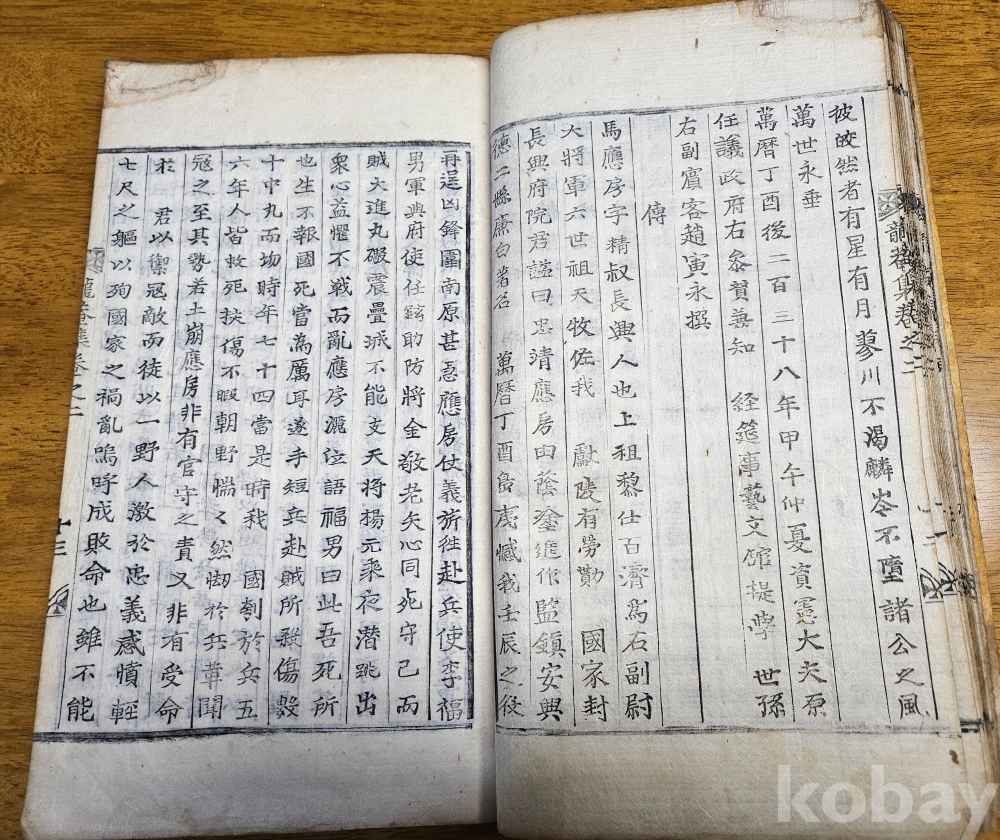 彼皎然者有星有月蓼川不渴麟岑不墮諸公之風
萬世永垂
萬曆丁酉後二百三十八年甲午仲夏資憲大夫原
任議政府右叅賛兼知 經筵事藝文館提學 世孫
右副賓客趙寅永撰
傳
馬應房字精叔長興人也上祖黎仕百濟爲右副尉
大將軍六世祖天牧佐我 獻陵有勞勩 國家封
長興府院君謚曰忠清應房由蔭塗進作監鎮安興
德二縣廉白著名 萬曆丁酉島夷憾我壬辰之役
再逞凶鋒圍南原甚急應房仗義旅往赴兵使李福
男軍與府使任鉉助防將金敬老矢心同死守已而
賊大進丸砲震疊城不能支天將楊元乘夜潜跳出
衆心益懼不戰而亂應房灑泣語福男曰此吾死所
也生不報國死當為厲耳遂手短兵赴賊所殺傷數
十中丸而歿時年七十四當是時我 國創於兵五
六年人皆救死扶傷不暇朝野惴〻然怵於兵革聞
冦之至其勢若土崩應房非有官守之責又非有受命
於 君以禦冦敵而徒以一野人激於忠義感憤輕
七尺之軀以殉國家之禍亂嗚呼成敗命也雖不能
卷之二
十三
kobay